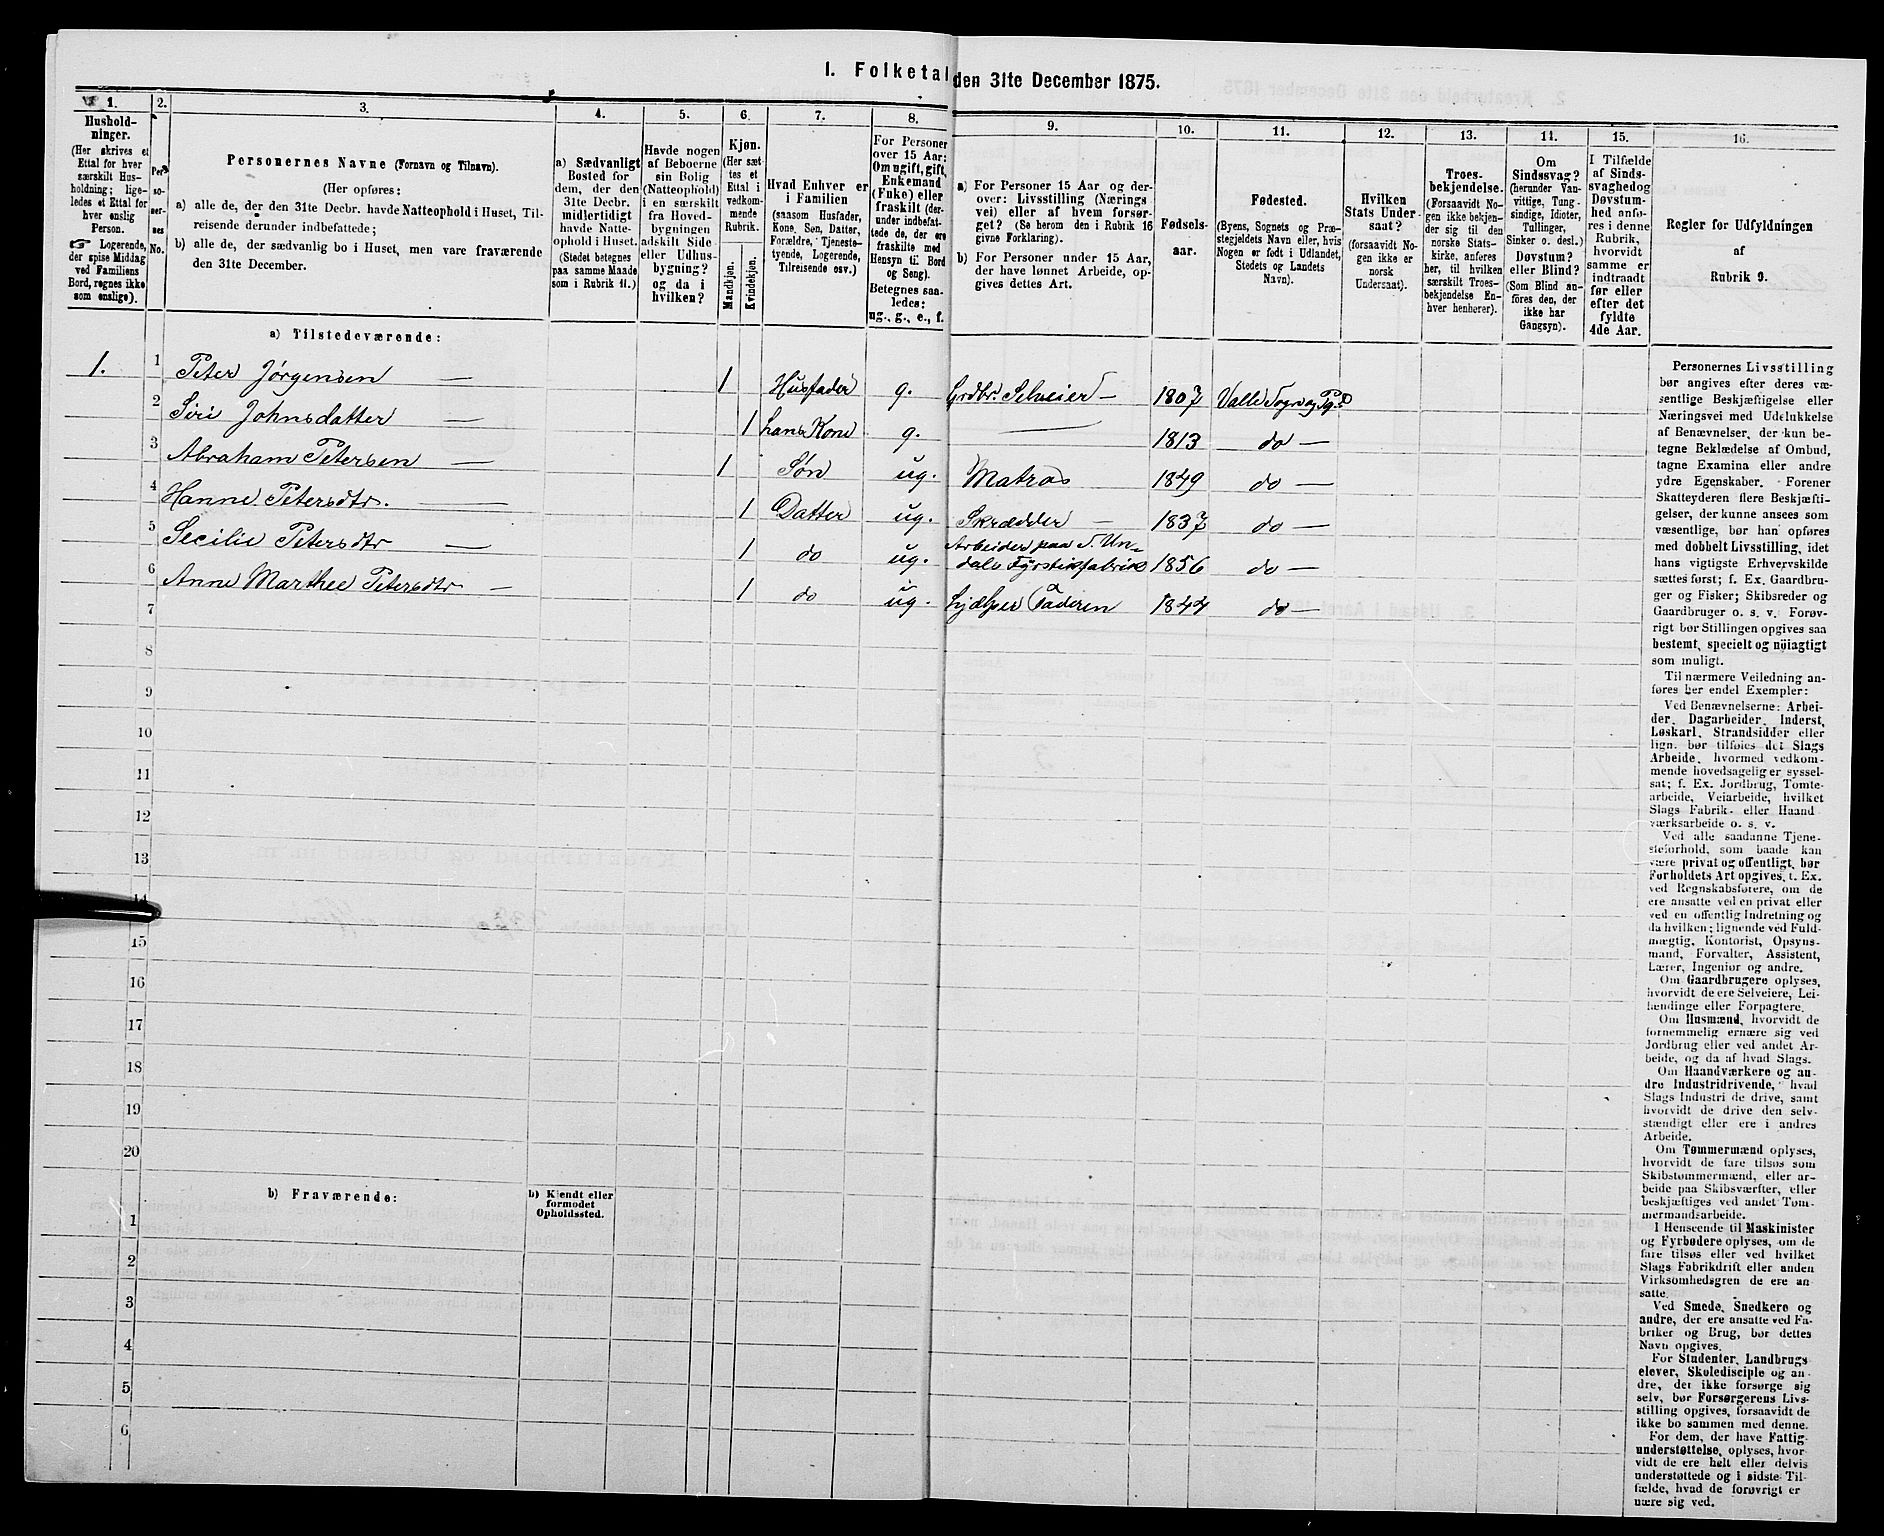 I. Folketal den 31te December 1875.
1.
Hushold-
ninger.
(Her skrives et
Ettal for hver
særskilt Hus-
holdning; lige-
ledes et Ettal for
hver enslig
Person.
☞ Logerende,
der spise Middag
ved Familiens
Bord, regnes ikke
som enslige).
2.
Per-
so-
ner-
nes
No.
3.
Personernes Navne (Fornavn og Tilnavn).
(Her opføres:
a) alle de, der den 31te Decbr. havde Natteophold i Huset, Til-
reisende derunder indbefattede;
b) alle de, der sædvanlig bo i Huset, men vare fraværende
den 31te December.
4.
a) Sædvanligt
Bosted for
dem, der den
31te Decbr.
midlertidigt
havde Natte-
ophold i Huset.
(Stedet betegnes
paa samme Maade
som i Rubrik 11.)
5.
Havde nogen
af Beboerne
sin Bolig
(Natteophold)
i en særskilt
fra Hoved-
bygningen
adskilt Side-
eller Udhus-
bygning?
og da i
hvilken?
6.
Kjøn.
(Her sæt-
tes et
Ettal i
vedkom-
mende
Rubrik.
Mandkjøn.
Kvindekjøn.
7.
Hvad Enhver er
i Familien
(saasom Husfader,
Kone, Søn, Datter,
Forældre, Tjeneste-
tyende, Logerende,
Tilreisende osv.)
8.
For Personer
over 15 Aar:
Om ugift, gift,
Enkemand
(Enke) eller
fraskilt (der-
under indbefat-
tede de, der ere
fraskilte med
Hensyn til Bord
og Seng).
Betegnes saa-
ledes:
ug., g., e., f.
9.
a) For Personer 15 Aar og der-
over: Livsstilling (Nærings-
vei) eller af hvem forsør-
get? (Se herom den i Rubrik 16
givne Forklaring).
b) For Personer under 15 Aar,
der have lønnet Arbeide, op-
gives dettes Art.
10.
Fødsels-
aar.
11.
Fødested.
(Byens, Sognets og Præ-
stegjeldets Navn eller, hvis
Nogen er født i Udlandet,
Stedets og Landets
Navn).
12.
Hvilken
Stats Under-
saat?
(forsaavidt No-
gen ikke er
norsk
Undersaat).
13.
Troes-
bekjendelse.
(Forsaavidt No-
gen ikke bekjen-
der sig til den
norske Stats-
kirke, anføres
her, til hvilken
særskilt Troes-
bekjendelse En-
hver henhører).
14.
Om
Sindssvag?
(herunder Van-
vittige, Tung-
sindige, Idioter,
Tullinger,
Sinker o. desl.)
Døvstum?
eller Blind?
(Som Blind an-
føres den, der
ikke har
Gangsyn).
15.
I Tilfælde
af Sinds-
svaghed og
Døvstum-
hed anfø-
res i denne
Rubrik,
hvorvidt
samme er
indtraadt
før eller
efter det
fyldte
4de Aar.
16.
Regler for Udfyldningen
af
Rubrik 9.
a) Tilstedeværende:
1. 1 Peter Jørgensen — 1 Husfader g. Grdbr. Selveier — 1807 Valle Sogn og Pg.
2 Siri Johnsdatter — 1 hans Kone g. — 1813 do —
3 Abraham Petersen — 1 Søn ug. Matros 1849 do —
4 Hanne Petersdtr. — 1 Datter ug. Skrædder — 1837 do —
5 Secilie Petersdtr — 1 do ug. Arbeider paa S. Un-
dals Fyrstikfabrik 1856 do —
6 Anne Marthee Petersdtr — 1 do ug. hjælper Faderen 1844 do —
7
8
9
10
11
12
13
14
15
16
17
18
19
20
b) Fraværende:
b) Kjendt eller
formodet
Opholdssted.
1
2
3
4
5
6
Personernes Livsstilling
bør angives efter deres væ-
sentlige Beskjæftigelse eller
Næringsvei med Udelukkelse
af Benævnelser, der kun be-
tegne Beklædelse af Ombud,
tagne Examina eller andre
ydre Egenskaber. Forener
Skatteyderen flere Beskjæfti-
gelser, der kunne ansees som
væsentlige, bør han opføres
med dobbelt Livsstilling, idet
hans vigtigste Erhvervskilde
sættes først; f. Ex. Gaardbru-
ger og Fisker; Skibsreder og
Gaardbruger o. s. v. Forøv-
rigt bør Stillingen opgives saa
bestemt, specielt og nøiagtigt
som muligt.
Til nærmere Veiledning an-
føres her endel Exempler:
Ved Benævnelserne: Arbei-
der, Dagarbeider, Inderst,
Løskarl, Strandsidder eller
lign. bør tilføies det Slags
Arbeide, hvormed vedkom-
mende hovedsagelig er syssel-
sat; f. Ex. Jordbrug, Tomte-
arbeide, Veiarbeide, hvilket
Slags Fabrik- eller Haand
værksarbeide o. s. v.
Ved alle saadanne Tjene-
steforhold, som baade kan
være privat og offentligt, bør
Forholdets Art opgives, f. Ex.
ved Regnskabsførere, om de
ere ansatte ved en privat eller
ved en offentlig Indretning og
da hvilken; lignende ved Fuld-
mægtig, Kontorist, Opsyns-
mand, Forvalter, Assistent,
Lærer, Ingeniør og andre.
Om Gaardbrugere oplyses,
hvorvidt de ere Selveiere, Lei-
lændinge eller Forpagtere.
Om Husmænd, hvorvidt de
fornemmelig ernære sig ved
Jordbrug eller ved andet Ar-
beide, og da af hvad Slags.
Om Haandværkere og an-
dre Industridrivende, hvad
Slags Industri de drive, samt
hvorvidt de drive den selv-
stændigt eller ere i andres
Arbeide.
Om Tømmermænd oplyses,
hvorvidt de fare tilsøs som
Skibstømmermænd, eller ar-
beide paa Skibsværfter, eller
beskjæftiges ved andet Tøm-
mermandsarbeide.
I Henseende til Maskinister
og Fyrbødere oplyses, om de
fare tilsøs eller ved hvilket
Slags Fabrikdrift eller anden
Virksomhedsgren de ere an-
satte.
Ved Smede, Snedkere og
andre, der ere ansatte ved Fa-
briker og Brug, bør dettes
Navn opgives.
For Studenter, Landbrugs-
elever, Skoledisciple og an-
dre, der ikke forsørge sig
selv, bør Forsørgerens Livs-
stilling opgives, forsaavidt de
ikke bo sammen med denne.
For dem, der have Fattig-
understøttelse, oplyses, hvor-
vidt de ere helt eller delvis
understøttede og i sidste Til-
fælde, hvad de forøvrigt er
nære sig ved.